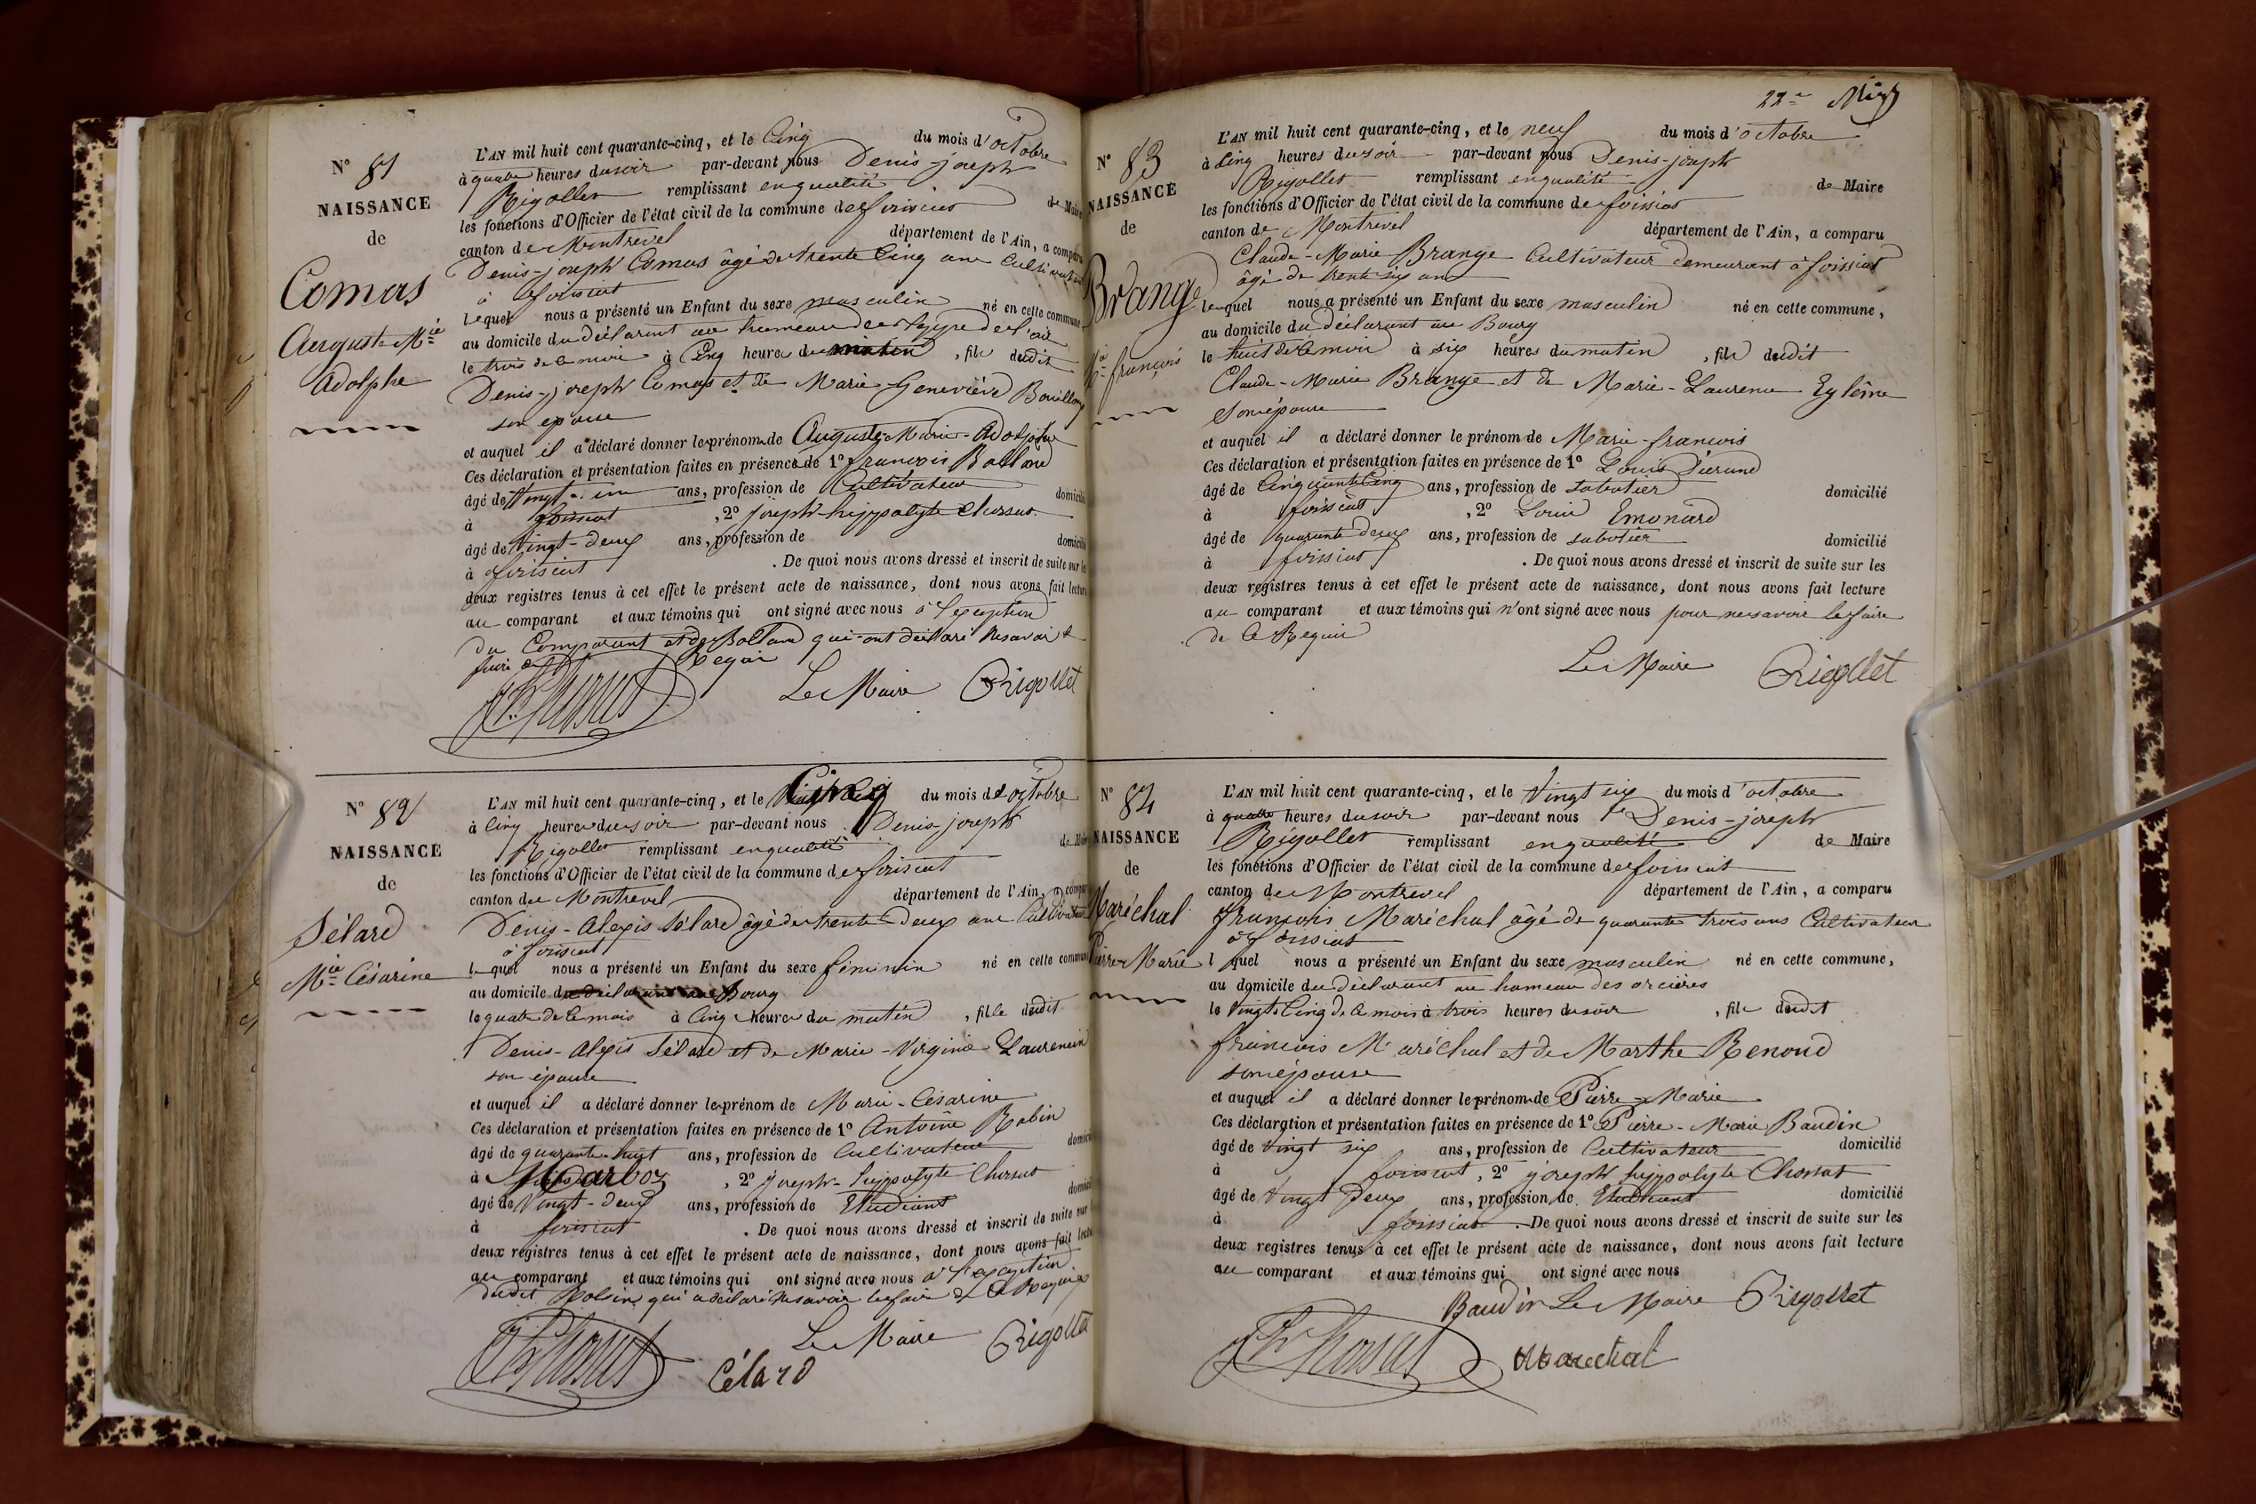 N° 81
NAISSANCE
de
Comas
Auguste Mie
Adolphe
L'AN mil huit cent quarante-cinq, et le Cinq du mois d'octobre
à quatre heures du soir par-devant nous Denis-joseph
Rigollet remplissant en qualité de Maire
les fonctions d'Officier de l'état civil de la commune de foissiat
canton de Montrevel département de l'Ain, a comparu
Denis-joseph Comas âgé de trente Cinq ans Cultivateur
à foissiat
lequel nous a présenté un Enfant du sexe masculin né en cette commune
au domicile du déclarant au hameau de
le trois de ce mois à Cinq heures du matin, fils dudit
Denis-joseph Comas et de Marie-Geneviève Bouillon
son épouse
et auquel il a déclaré donner les prénoms de Auguste-Marie-Adolphe
Ces déclaration et présentation faites en présence de 1° françois Balland
âgé de Vingt-un ans, profession de Cultivateur domicilié
à foissiat, 2° joseph-hippolyte Chossat
âgé de Vingt-deux ans, profession de domicilié
à foissiat. De quoi nous avons dressé et inscrit de suite sur les
deux registres tenus à cet effet le présent acte de naissance, dont nous avons fait lecture
au comparant et aux témoins qui ont signé avec nous à l'exception
du Comparant et de Balland qui ont déclaré ne savoir le
faire de ce Requis
Jh Chossat Le Maire Rigollet
N° 82
NAISSANCE
de
Sélard
Mie Césarine
L'AN mil huit cent quarante-cinq, et le Cinq du mois d'octobre
à Cinq heures du soir par-devant nous Denis-joseph
Rigollet remplissant en qualité de Maire
les fonctions d'Officier de l'état civil de la commune de foissiat
canton de Montrevel département de l'Ain, a comparu
Denis-Alexis Sélard âgé de trente-deux ans Cultivateur
à foissiat
lequel nous a présenté un Enfant du sexe féminin né en cette commune
au domicile du déclarant au Bourg
le quatre de ce mois à Cinq heures du matin, fille dudit
Denis-Alexis Sélard et de Marie-Virginie Laurencin
son épouse
et auquel il a déclaré donner les prénom de Marie-Césarine
Ces déclaration et présentation faites en présence de 1° Antoine Robin
âgé de quarante-huit ans, profession de Cultivateur domicilié
à Marboz, 2° joseph-hippolyte Chossat
âgé de Vingt-deux ans, profession de Etudiant domicilié
à foissiat. De quoi nous avons dressé et inscrit de suite sur les
deux registres tenus à cet effet le présent acte de naissance, dont nous avons fait lecture
au comparant et aux témoins qui ont signé avec nous à l'exception
dudit Robin qui a déclaré ne savoir le faire de ce Requis
Jh Chossat Célard Le Maire Rigollet
22e
N° 83
NAISSANCE
de
Brange
Mie françois
L'AN mil huit cent quarante-cinq, et le neuf du mois d'octobre
à Cinq heures du soir par-devant nous Denis-joseph
Rigollet remplissant en qualité de Maire
les fonctions d'Officier de l'état civil de la commune de foissiat
canton de Montrevel département de l'Ain, a comparu
Claude-Marie Brange Cultivateur demeurant à foissiat
âgé de trente six ans
lequel nous a présenté un Enfant du sexe masculin né en cette commune,
au domicile du déclarant au Bourg
le huit de ce mois à six heures du matin, fils dudit
Claude-Marie Brange et de Marie-Laurence
son épouse
et auquel il a déclaré donner le prénom de Marie-françois
Ces déclaration et présentation faites en présence de 1° Louis
âgé de Cinquante Cinq ans, profession de sabotier domicilié
à foissiat, 2° Louis Emonard
âgé de quarante deux ans, profession de sabotier domicilié
à foissiat. De quoi nous avons dressé et inscrit de suite sur les
deux registres tenus à cet effet le présent acte de naissance, dont nous avons fait lecture
au comparant et aux témoins qui n'ont signé avec nous pour ne savoir le faire
de ce Requis
Le Maire Rigollet
N° 84
NAISSANCE
de
Maréchal
Pierre-Marie
L'AN mil huit cent quarante-cinq, et le Vingt six du mois d'octobre
à quatre heures du soir par-devant nous Denis-joseph
Rigollet remplissant en qualité de Maire
les fonctions d'Officier de l'état civil de la commune de foissiat
canton de Montrevel département de l'Ain, a comparu
françois Maréchal âgé de quarante trois ans Cultivateur
à foissiat
l quel nous a présenté un Enfant du sexe masculin né en cette commune,
au domicile du déclarant au hameau des orcières
le Vingt Cinq de ce mois à trois heures du soir, fils dudit
françois Maréchal et de Marthe Renoud
son épouse
et auquel il a déclaré donner les prénoms de Pierre-Marie
Ces déclaration et présentation faites en présence de 1° Pierre-Marie Baudin
âgé de Vingt six ans, profession de Cultivateur domicilié
à foissiat, 2° joseph hippolyte Chossat
âgé de Vingt Deux ans, profession de Etudiant domicilié
à foissiat. De quoi nous avons dressé et inscrit de suite sur les
deux registres tenus à cet effet le présent acte de naissance, dont nous avons fait lecture
au comparant et aux témoins qui ont signé avec nous
Baudin Le Maire Rigollet
Jh Chossat Marechal